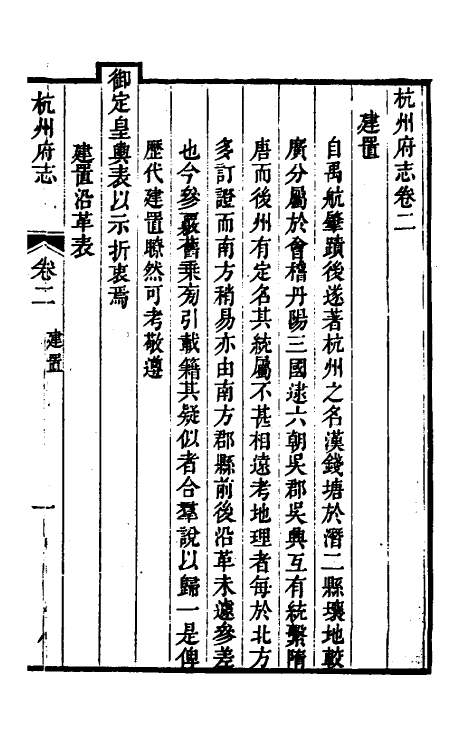 杭州府志卷二
建置
自禹航肇蹟後遂著杭州之名漢錢塘於潛二縣壤地較
廣分屬於會稽丹陽三國逮六朝吳郡吳興互有統繫隋
唐而後州有定名其統屬不甚相遠考地理者每於北方
多訂證而南方稍易亦由南方郡縣前後沿革未遽參差
也今參覈舊乘旁引載籍其疑似者合羣說以歸一是俾
歷代建置瞭然可考敬遵
御定皇輿表以示折衷焉
建置沿革表
杭州府志
卷二
建置
一